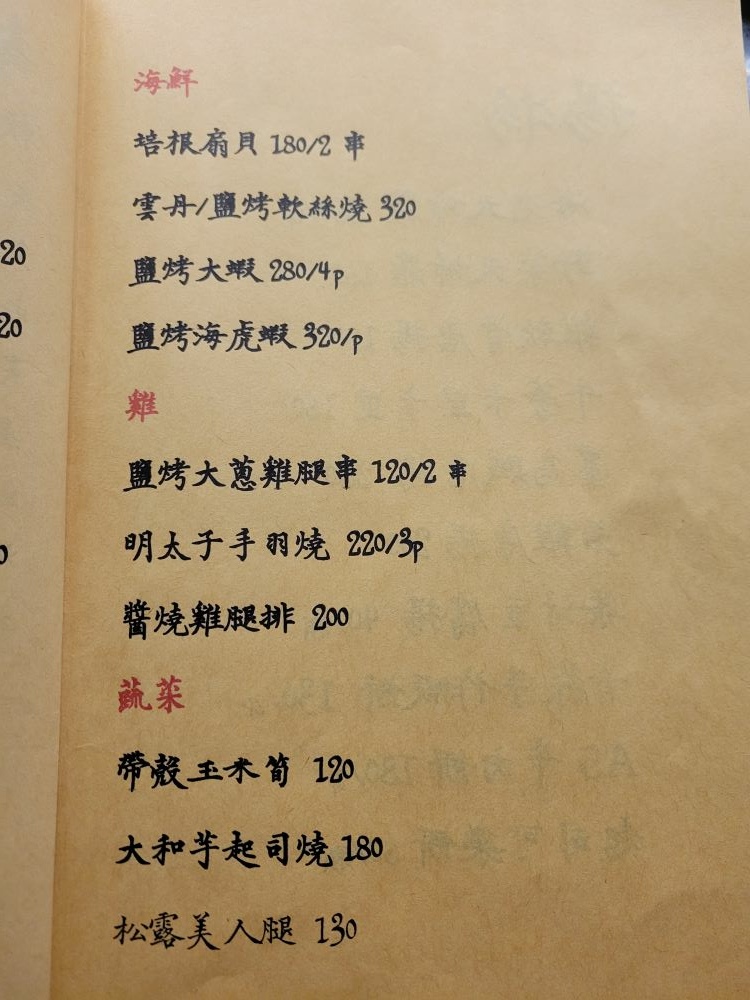 海鮮
培根扇貝 180/2 串
雲丹/鹽烤軟絲燒 320
鹽烤大蝦 280/4p
鹽烤海虎蝦 320/p
雞
鹽烤大蔥雞腿串 120/2 串
明太子手羽燒 220/3p
醬燒雞腿排 200
蔬菜
帶殼玉米筍 120
大和芋起司燒 180
松露美人腿 130
20
20
0